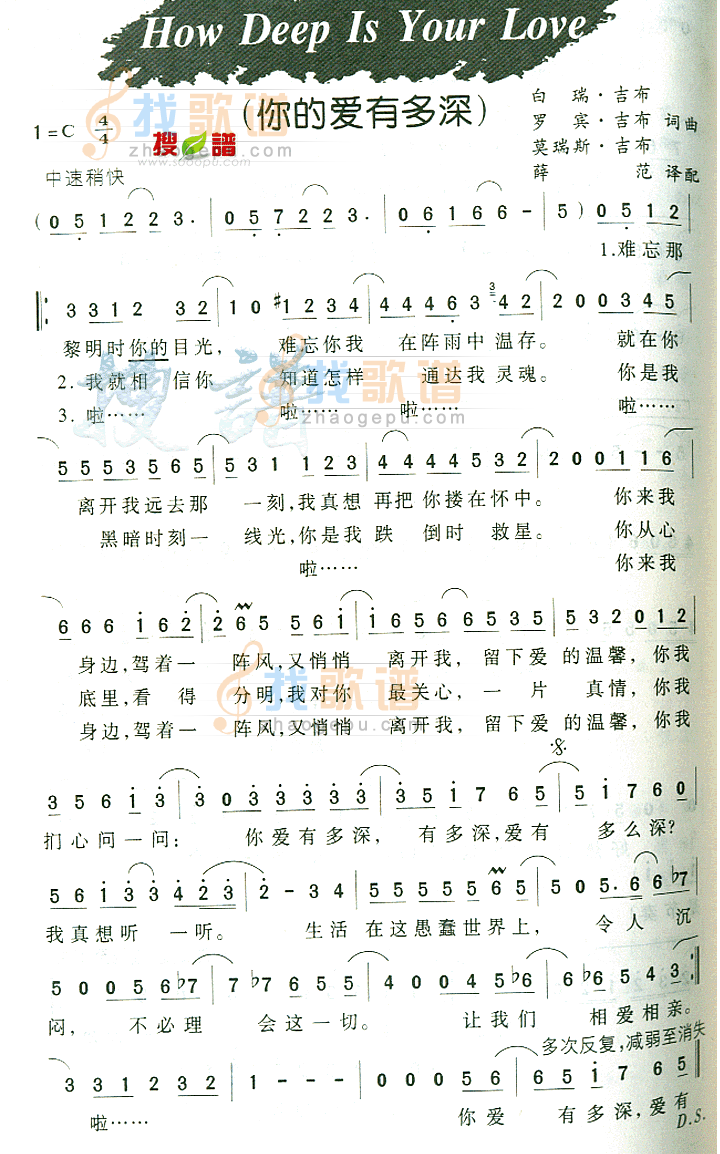 How Deep Is Your Love
(你的爱有多深)
1=C 4/4
白 瑞·吉布
罗 宾·吉布 词曲
莫瑞斯·吉布
薛 范 译配
找歌谱
搜谱
zhaogepu.com
www.sooopu.com
中速稍快
(0 5 1 2 2 3. 0 5 7 2 2 3. 0 6 1 6 6 - 5) 0 5 1 2
1.难忘那
3 3 1 2 3 2 1 0 #1 2 3 4 4 4 4 6 3 3 4 2 2 0 0 3 4 5
黎明时你的目光, 难忘你我 在阵雨中 温存。 就在你
2.我就相 信你 知道怎样 通达我 灵魂。 你是我
3.啦…… 啦…… 啦…… 啦……
搜谱
找歌谱
zhaogepu.com
5 5 5 3 5 6 5 5 3 1 1 2 3 4 4 4 4 3 4 2 0 0 1 1 6
离开我远去那 一刻,我真想 再把 你搂在怀中。 你来我
黑暗时刻一 线光,你是我 跌 倒时 救星。 你从心
啦…… 你来我
6 6 6 i 6 2 2 6 5 5 6 i i 6 5 6 6 5 3 5 5 3 2 0 1 2
身边,驾着一 阵风,又悄悄 离开我, 留下爱 的温馨, 你我
底里,看 得 分明,我对你 最关心, 一 片 真情, 你我
身边,驾着一 阵风,又悄悄 离开我, 留下爱 的温馨, 你我
找歌谱
zhaogepu.com
3 5 6 i 3 3 0 3 3 3 3 3 3 5 i 7 6 5 5 i 7 6 0
扪心问一问: 你爱有多深, 有多深,爱有 多么深?
5 6 i 3 3 4 2 3 2 - 3 4 5 5 5 5 5 6 5 5 0 5. 6 6 ♭7
我真想听 一听。 生活 在这愚蠢世界上, 令人 沉
5 0 0 5 6 ♭7 7 ♭7 6 5 4 0 0 4 5 ♭6 ♭6 5 4 3
闷, 不必理 会这一切。 让我们 相爱相亲。
多次反复,减弱至消失
3 3 1 2 3 2 1 - - - 0 0 0 5 6 5 i 7 6 5
啦…… 你爱 有多深,爱有
D.S.